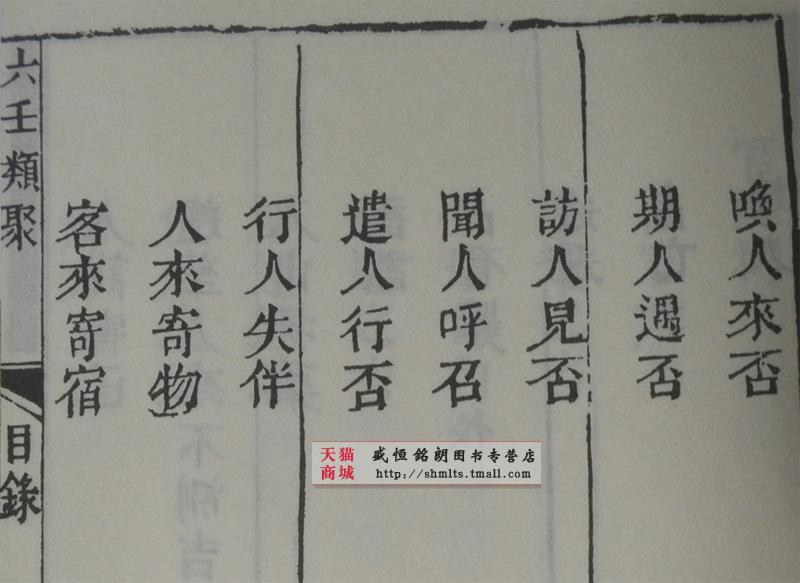 喚人來否
期人遇否
訪人見否
聞人呼召
遣人行否
行人失伴
人來寄物
客來寄宿
六壬類聚
目錄
天猫商城
盛恒銘朗图书专营店
http://shmlts.tmall.com